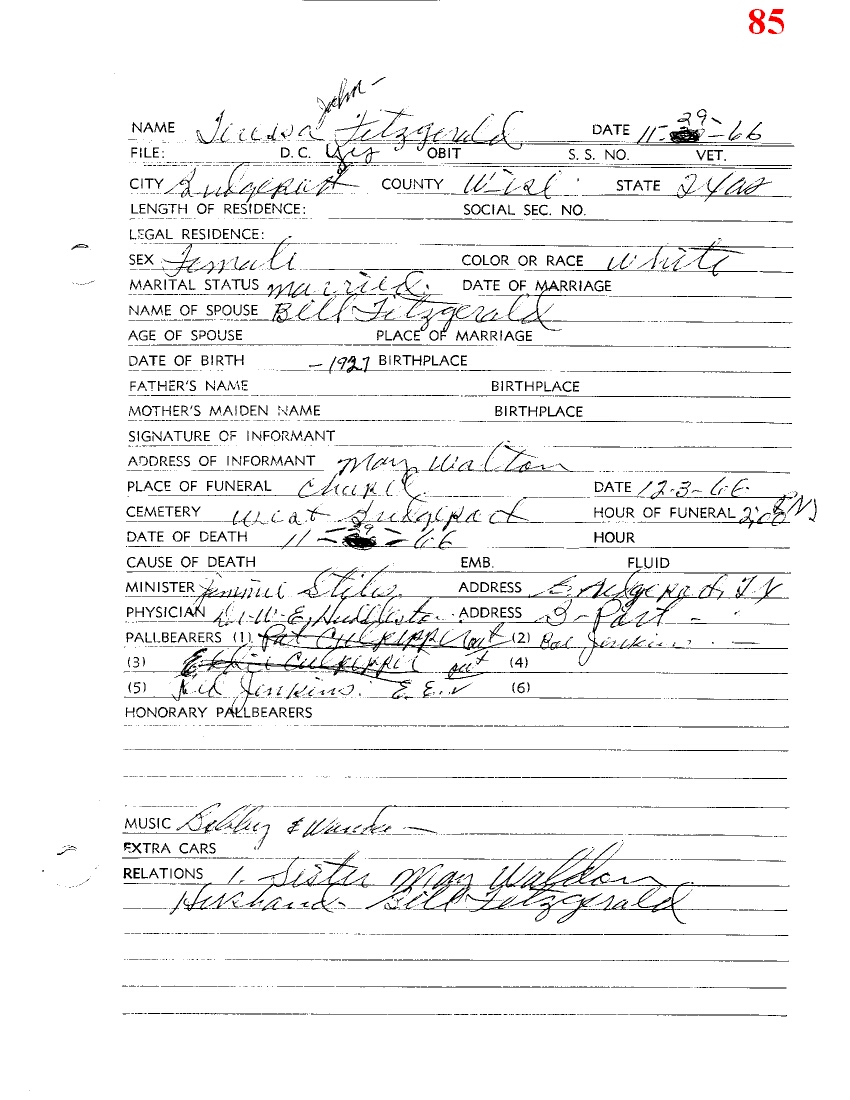 85
John -
NAME Teresa Fitzgerald DATE 11-29-66
FILE: D. C. yes OBIT S. S. NO. VET.
CITY Bridgeport COUNTY Wise STATE
LENGTH OF RESIDENCE: SOCIAL SEC. NO.
LEGAL RESIDENCE:
SEX Female COLOR OR RACE White
MARITAL STATUS married. DATE OF MARRIAGE
NAME OF SPOUSE Bill Fitzgerald
AGE OF SPOUSE PLACE OF MARRIAGE
DATE OF BIRTH -1927 BIRTHPLACE
FATHER'S NAME BIRTHPLACE
MOTHER'S MAIDEN NAME BIRTHPLACE
SIGNATURE OF INFORMANT
ADDRESS OF INFORMANT May Walton
PLACE OF FUNERAL Chapel DATE 12-3-66
CEMETERY West Bridgeport HOUR OF FUNERAL 2:00 PM
DATE OF DEATH 11-29-66 HOUR
CAUSE OF DEATH EMB. FLUID
MINISTER Jimmie Stiles ADDRESS Bridgeport, TX
PHYSICIAN Dr. W. E. Huddleston ADDRESS B-Port -
PALLBEARERS (1) Pat Culpepper out (2) Jenkins -
(3) Culpepper out (4)
(5) Jenkins (6)
HONORARY PALLBEARERS
MUSIC Bobby & Wanda -
EXTRA CARS
RELATIONS 1. Sister May Waldon
Husband - Bill Fitzgerald